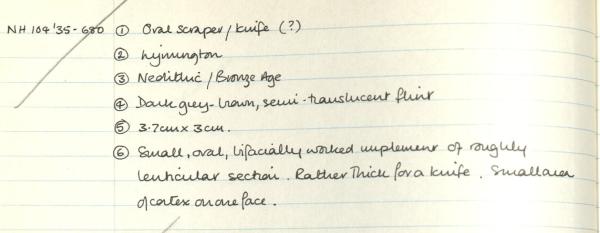 NH 104'35-680 ① Oval scraper/knife (?)
② Lymington
③ Neolithic/Bronze Age
④ Dark grey-brown, semi-translucent flint
⑤ 3.7cm x 3cm.
⑥ Small, oval, bifacially worked implement of roughly
lenticular section. Rather thick for a knife. Small area
of cortex on one face.